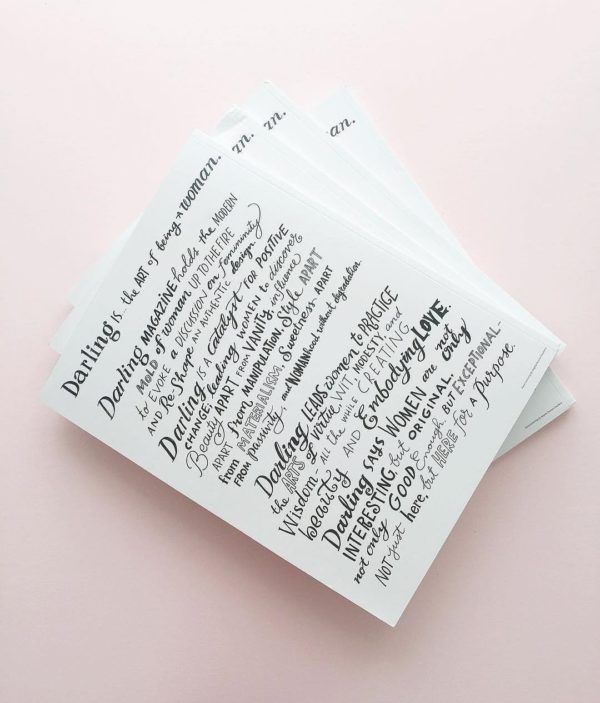 Darling is... the ART of being a woman.
Darling MAGAZINE holds the MODERN
MOLD of woman UP TO THE FIRE
to EVOKE a DISCUSSION on femininity
AND Re-Shape AN AUTHENTIC design.
Darling IS A catalyst FOR POSITIVE
CHANGE, leading WOMEN to discover
Beauty APART FROM VANITY, influence
APART from MANIPULATION, Style APART
from MATERIALISM, Sweetness APART
FROM passivity, and WOMANhood without degradation.
Darling LEADS women to PRACTICE
the ARTS of virtue, WIT, MODESTY, and
Wisdom ALL the WHILE CREATING
beauty AND Embodying LOVE.
Darling SAYS WOMEN are not only
INTERESTING, but ORIGINAL,
not only GOOD Enough, BUT EXCEPTIONAL–
NOT just here, but HERE FOR a Purpose.
an.
an.
an.